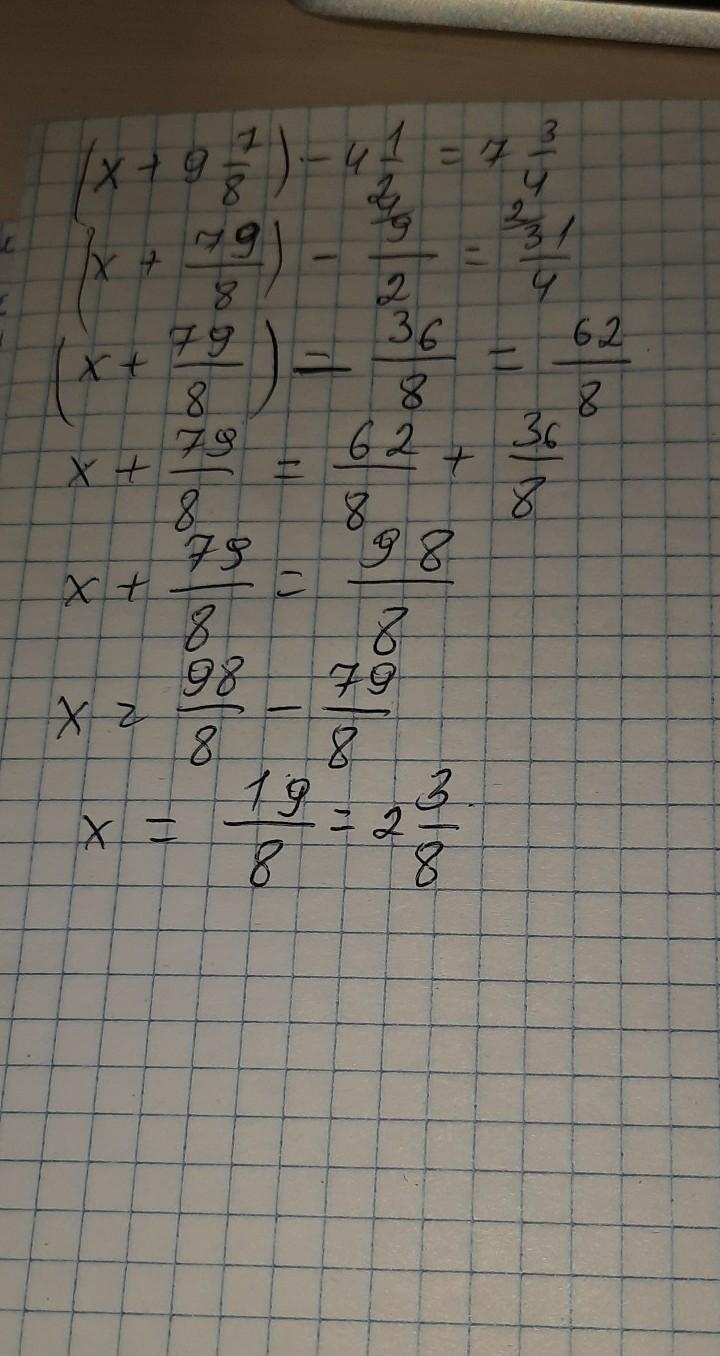 (x + 9 7/8) - 4 1/2 = 7 3/4
(x + 79/8) - 9/2 = 31/4
(x + 79/8) - 36/8 = 62/8
x + 79/8 = 62/8 + 36/8
x + 79/8 = 98/8
x = 98/8 - 79/8
x = 19/8 = 2 3/8